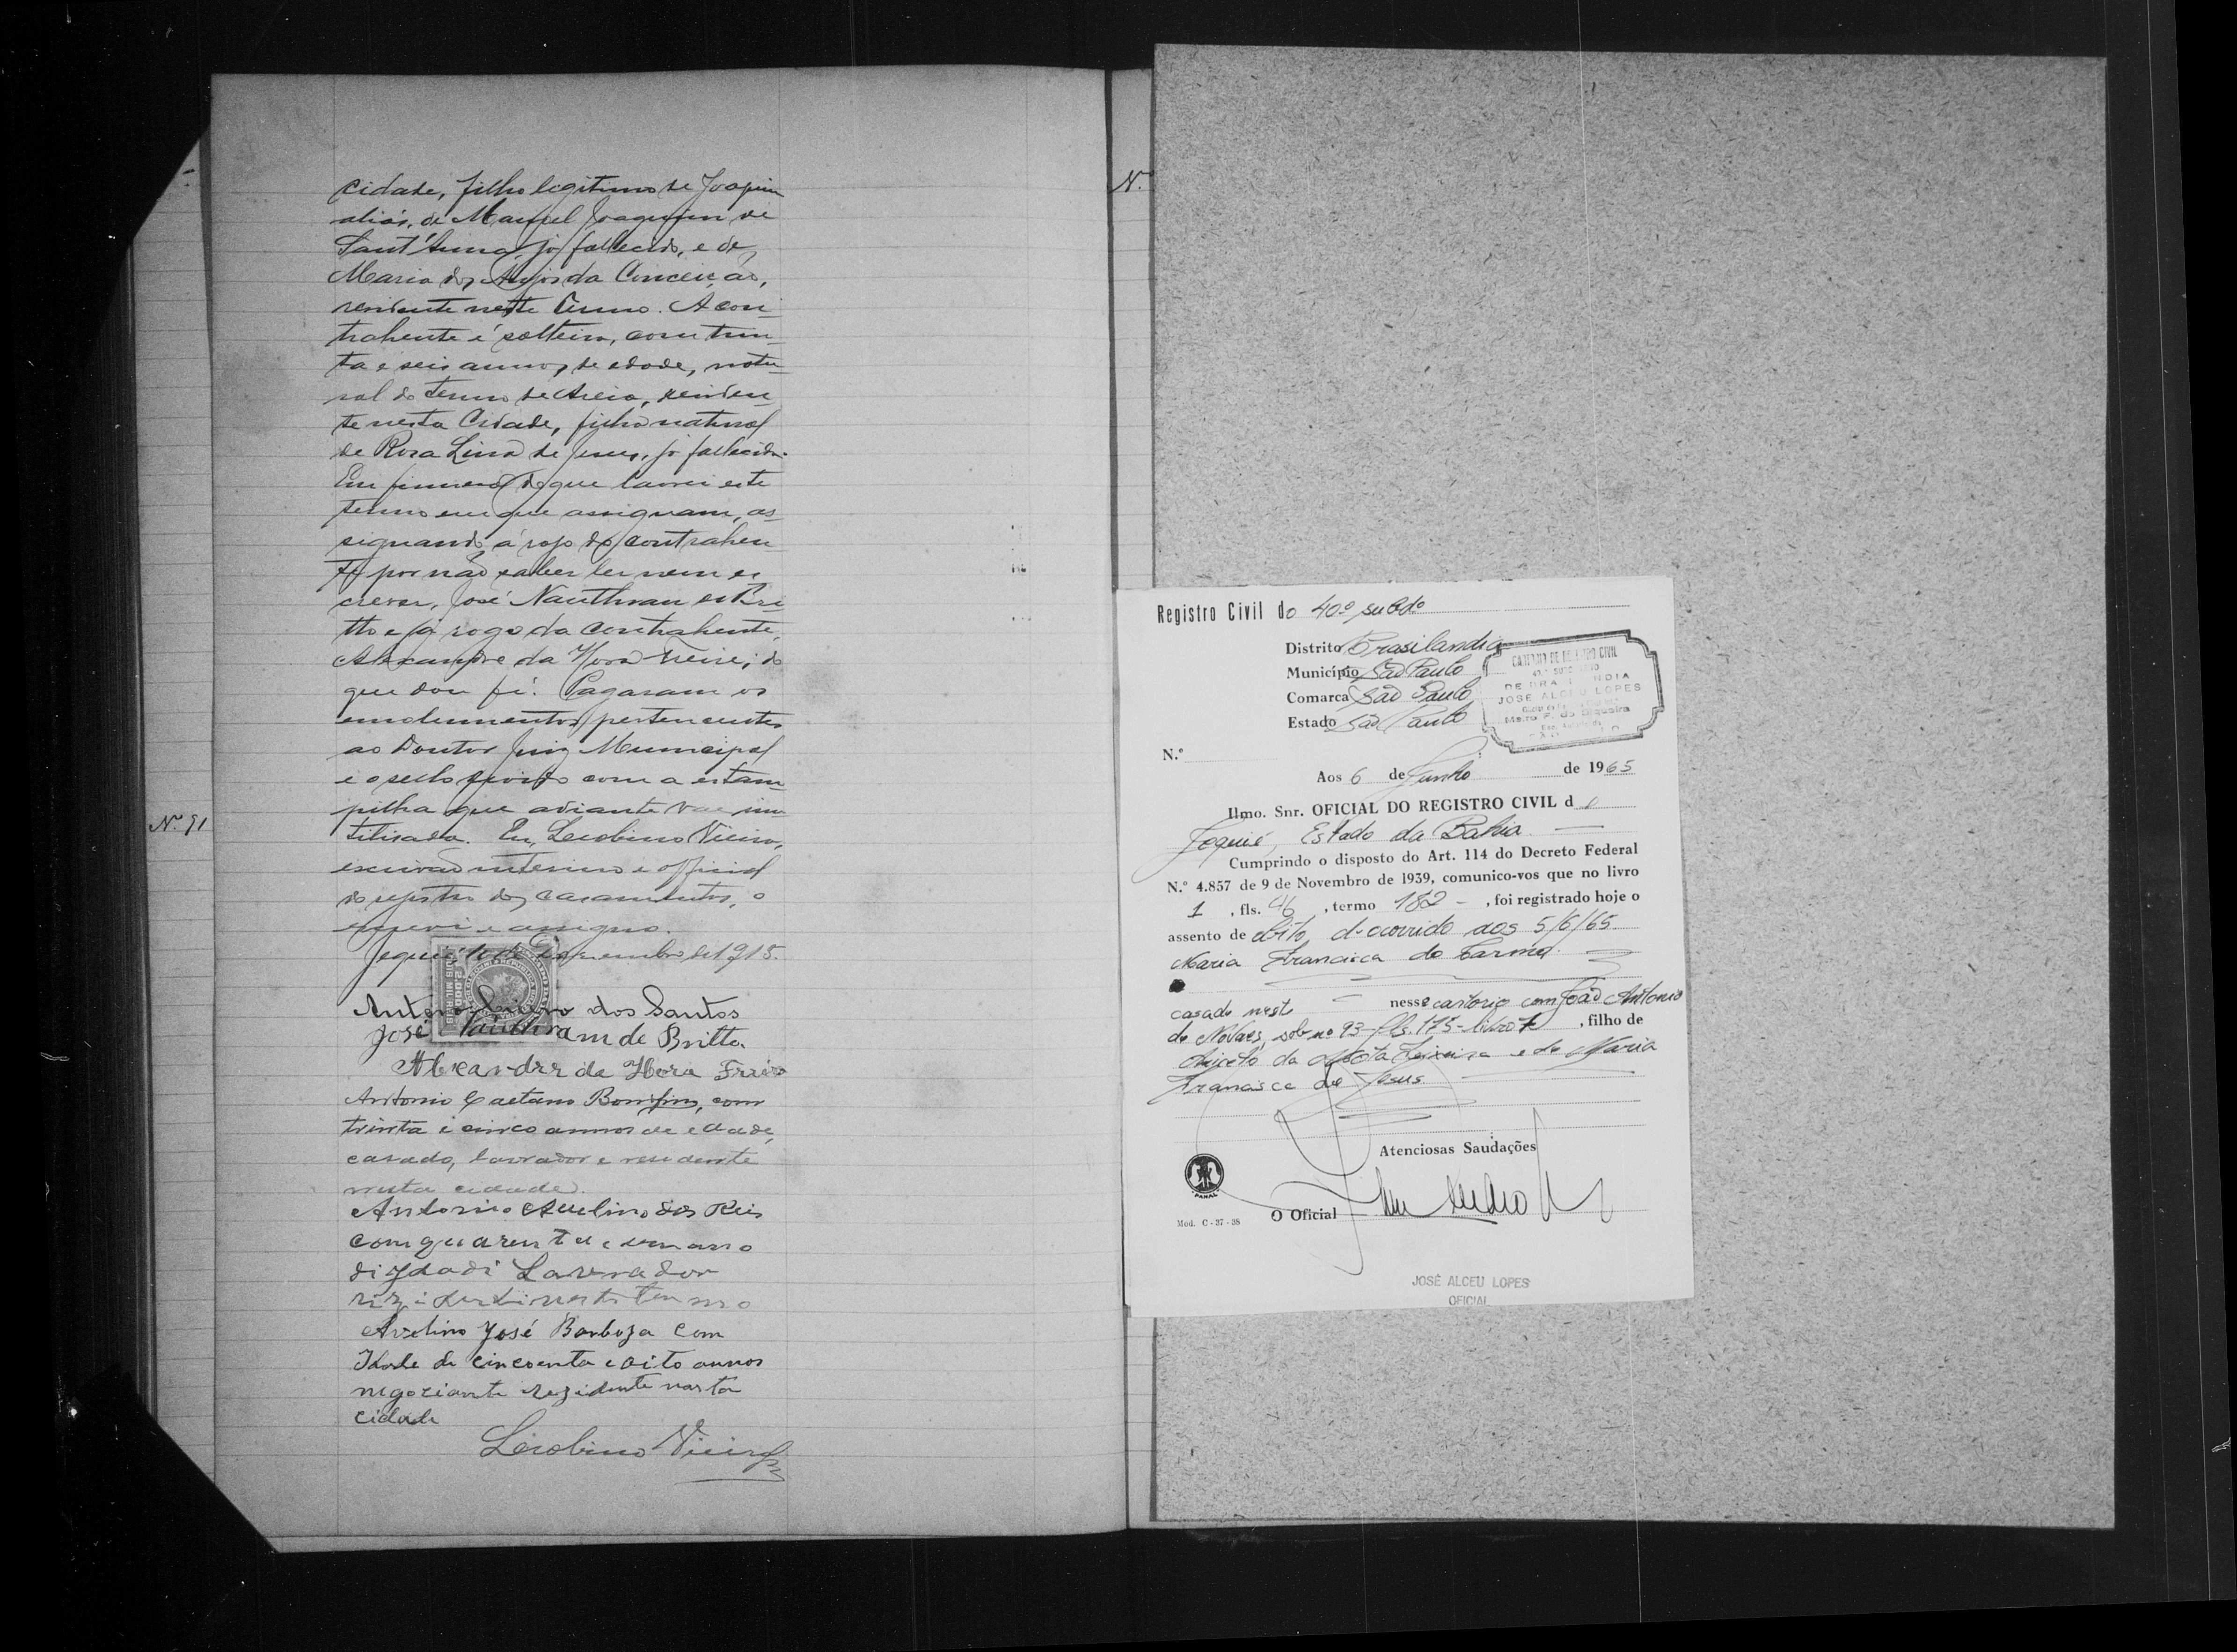 cidade, filho legitimo de Joaquim
aliás, de Manoel Joaquim de
Sant'Anna, já fallecido, e de
Maria dos Anjos da Conceição,
residente neste Termo. A con-
trahente é solteira, com trin-
ta e seis annos de edade, natu-
ral do Termo de Areia, residen-
te nesta Cidade, filha natural
de Rosa Lina de Jesus, já fallecida.
Em firmeza do que lavrei este
termo em que assignam, as-
signando á rogo do contrahen-
te por não saber ler nem es-
crever, José Nauthram de Bri-
tto e á rogo da contrahente,
Alexandre da Hora Freire; do
que dou fé. Pagaram os
emolumentos pertencentes
ao Doutor Juiz Municipal
e o sello devido com a estam-
pilha que adiante vae inu-
tilisada. Eu, Leobino Vieira,
escrivão interino e official
do registro dos casamentos, o
escrevi e assigno.
Jequié, 10 de Dezembro de 1915.
2.000
Antonio dos Santos
José Nauthram de Britto.
Alexandre da Hora Freire
Antonio Caetano Bomfim, com
trinta e cinco annos de edade,
casado, lavrador e residente
nesta cidade.
Antonio Avelino dos Reis
com quarenta e um anno
di idadi Lavrador
rizidenti nesti termo
Avelino José Barboza com
Idade de cincoenta e oito annos
negociante rezidente nesta
cidade
Leobino Vieira
Nº 91
N.
Registro Civil do 40º subdº
Distrito Brasilandia
Município São Paulo
Comarca São Paulo
Estado São Paulo
CARTORIO DE REGISTRO CIVIL
JOSE ALCEU LOPES
N.º
Aos 6 de Junho de 1965
Ilmo. Snr. OFICIAL DO REGISTRO CIVIL d
Jequié, Estado da Bahia
Cumprindo o disposto do Art. 114 do Decreto Federal
N.º 4.857 de 9 de Novembro de 1939, comunico-vos que no livro
1 , fls. 46 , termo 182 - , foi registrado hoje o
assento de obito d. ocorrido aos 5/6/65
Maria Francisca do Carmo
casado nest nesse cartorio com João Antonio
de Novaes, sob nº 93 - fls. 175 - livro 7 , filho de
Aniceto da Mota Teixeira e de Maria
Francisca de Jesus
Atenciosas Saudações
PANAL
Mod. C-37-38
O Oficial
JOSÉ ALCEU LOPES
OFICIAL